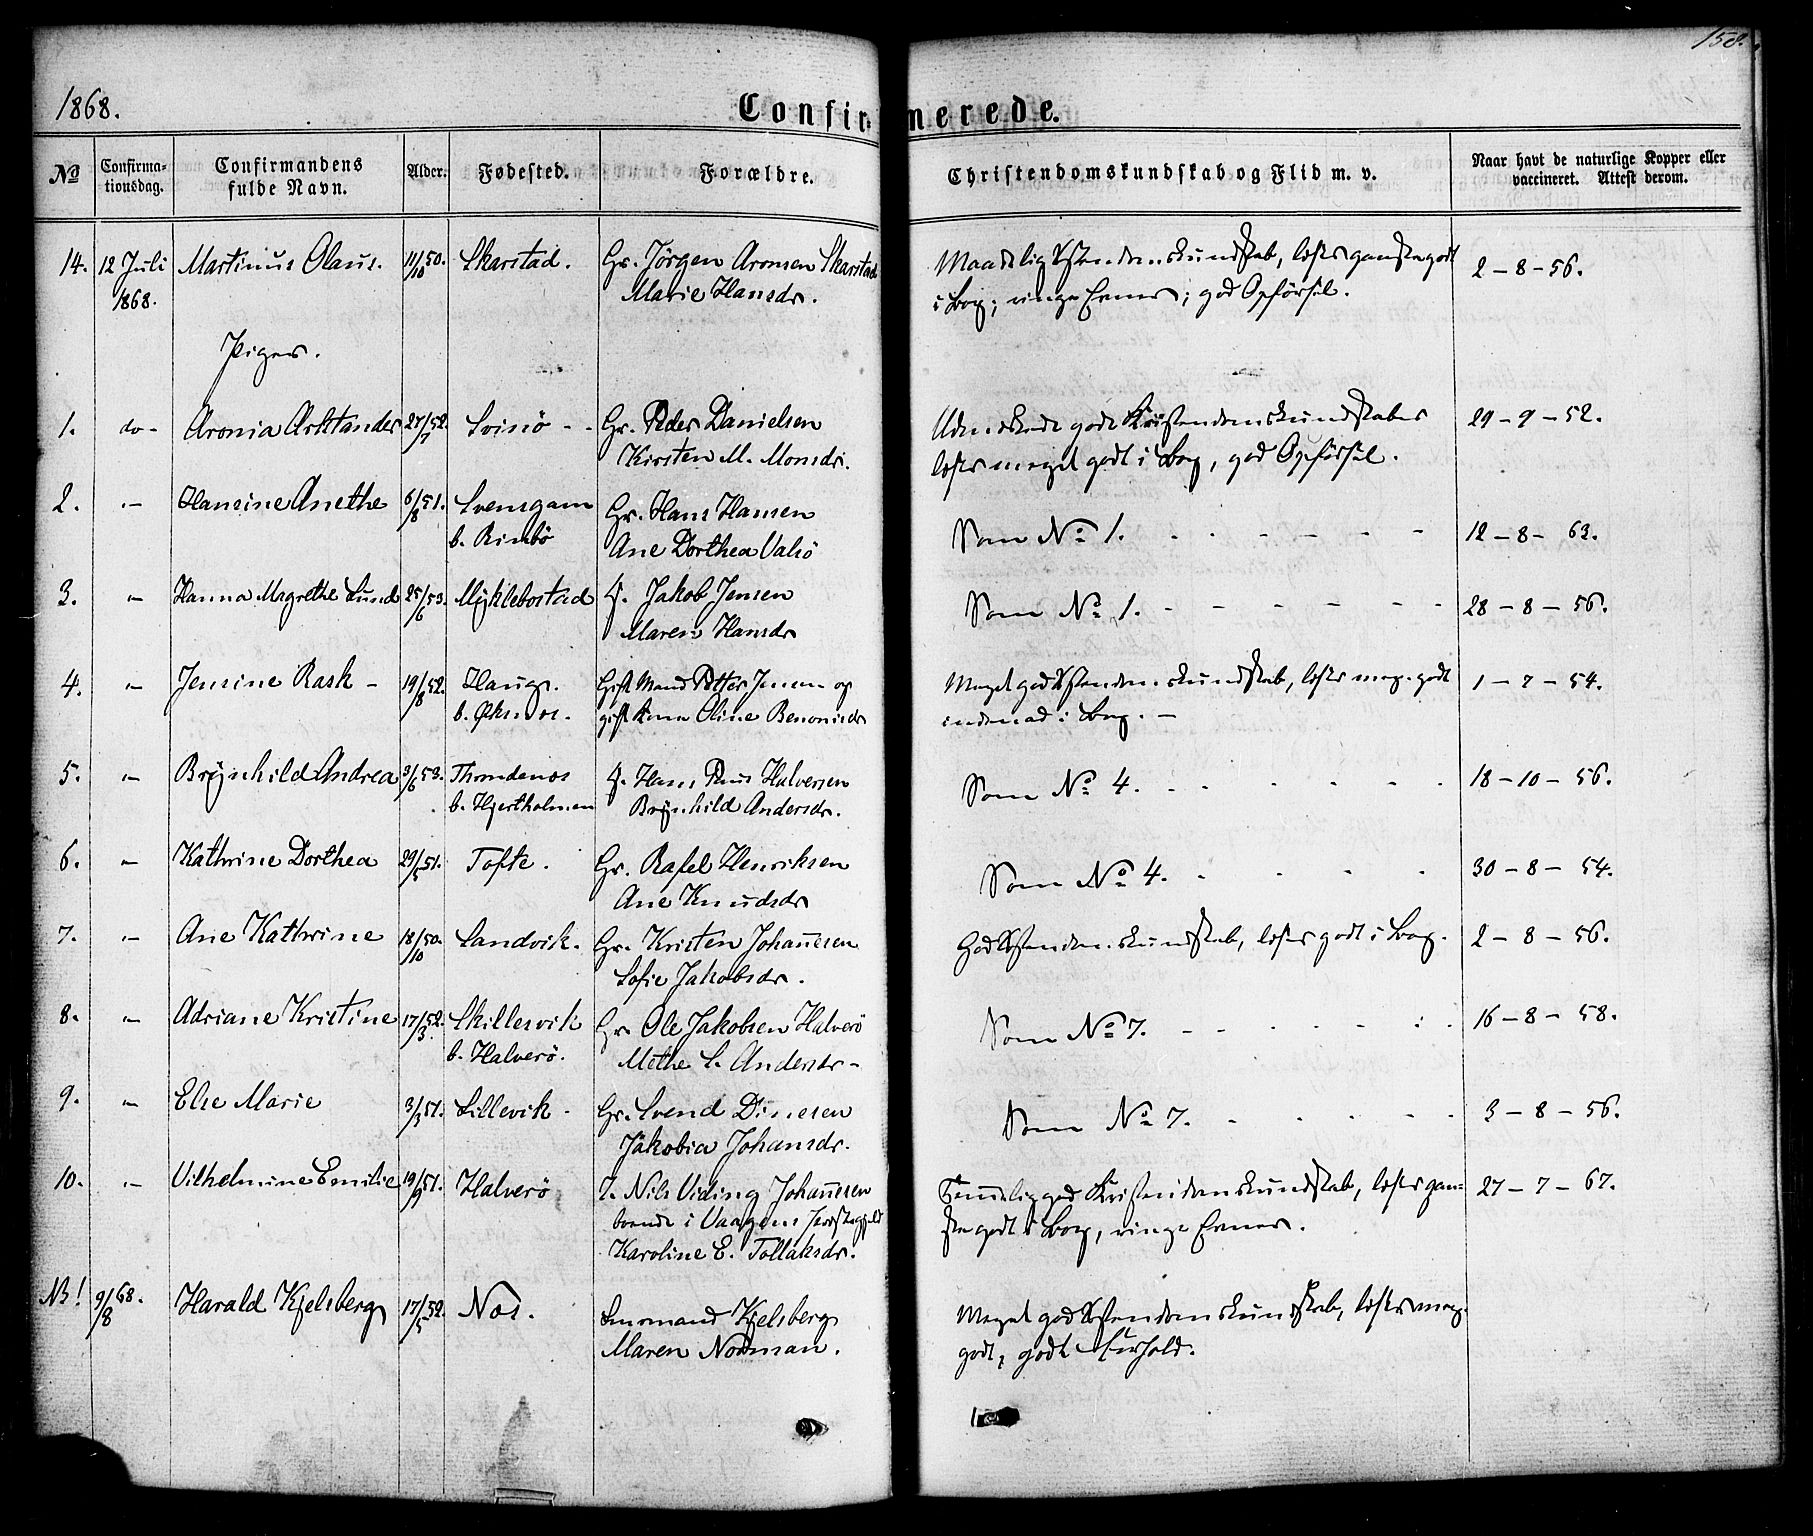 158.
1868.
Confirmerede.
No
Confirma-
tionsdag.
Confirmandens
fulde Navn.
Alder.
Fødested.
Forældre.
Christendomskundskab og Flid m. v.
Naar havt de naturlige Kopper eller
vaccineret. Attest derom.
14. 12 Juli Martinus Olaus. 11/10 50. Skarstad. Gr. Jörgen Aronsen Skarstad Maadelig Xstendomskundskab, læser ganske godt 2-8-56.
1868. Marie Hansdr. i Bog; ringe Evner; god Opförsel.
Piger.
1. do- Aronia Arktander 27/7 52. Svinö - - Gr. Peder Danielsen Udmærkede gode Kristendomskundskaber 29-9-52.
Kirsten M. Monsdr. læser meget godt i Bog, god Opförsel.
2. "- Hansine Anethe 6/8 51. Svensgam Gr. Hans Hansen Som No 1. 12-8-63.
b. Rinbö Ane Dorthea Valsö
3. "- Hanna Magrethe Lund 25/6 53. Myklebostad F. Jakob Jensen Som No 1. 28-8-56.
Maren Hansdr
4. "- Jensine Rask - 19/8 52. Haugs. Gift Mand Petter Jensen og Meget god Xstendomskundskab, læser meg. godt 1-7-54.
b. Øksnes. gift Kone Oline Benonisdr indenad i Bog. -
5. "- Brynhild Andrea 3/6 53. Throndenes F. Hans Halvorsen Som No 4. 18-10-56.
b. Hjertholmen Brynhild Andersdr.
6. "- Kathrine Dorthea 29/5 51. Tofte. Gr. Rafel Henriksen Som No 4. 30-8-54.
Ane Knudsdr
7. "- Ane Kathrine 18/10 50. Sandvik. Gr. Kristen Johannesen God Xstendomskundskab, læser godt i Bog. 2-8-56.
Sofie Jakobsdr.
8. "- Adriane Kristine 17/3 52. Skillesvik Gr. Ole Jakobsen Halverö Som No 7. 16-8-58.
b. Halverö. Methe S. Andersdr-
9. "- Else Marie 3/3 51. Lillevik - Gr. Svend Dinesen Som No 7. 3-8-56.
Jakobia Johansdr.
10. "- Vilhelmine Emilie 19/9 51. Halverö Nils Viding Johannesen Temmelig god Kristendomskundskab, læser gan- 27-7-67.
boende i Vaagens Præstegjeld ske godt i Bog, ringe Evner.
Karoline E. Tollaksdr.
NB! 9/8 68. Harald Kjelsberg 17/5 52. Nes. Lensmand Kjelsberg Meget god Xstendomskundskab, læser meg.
Maren Norman. godt, godt Forhold.